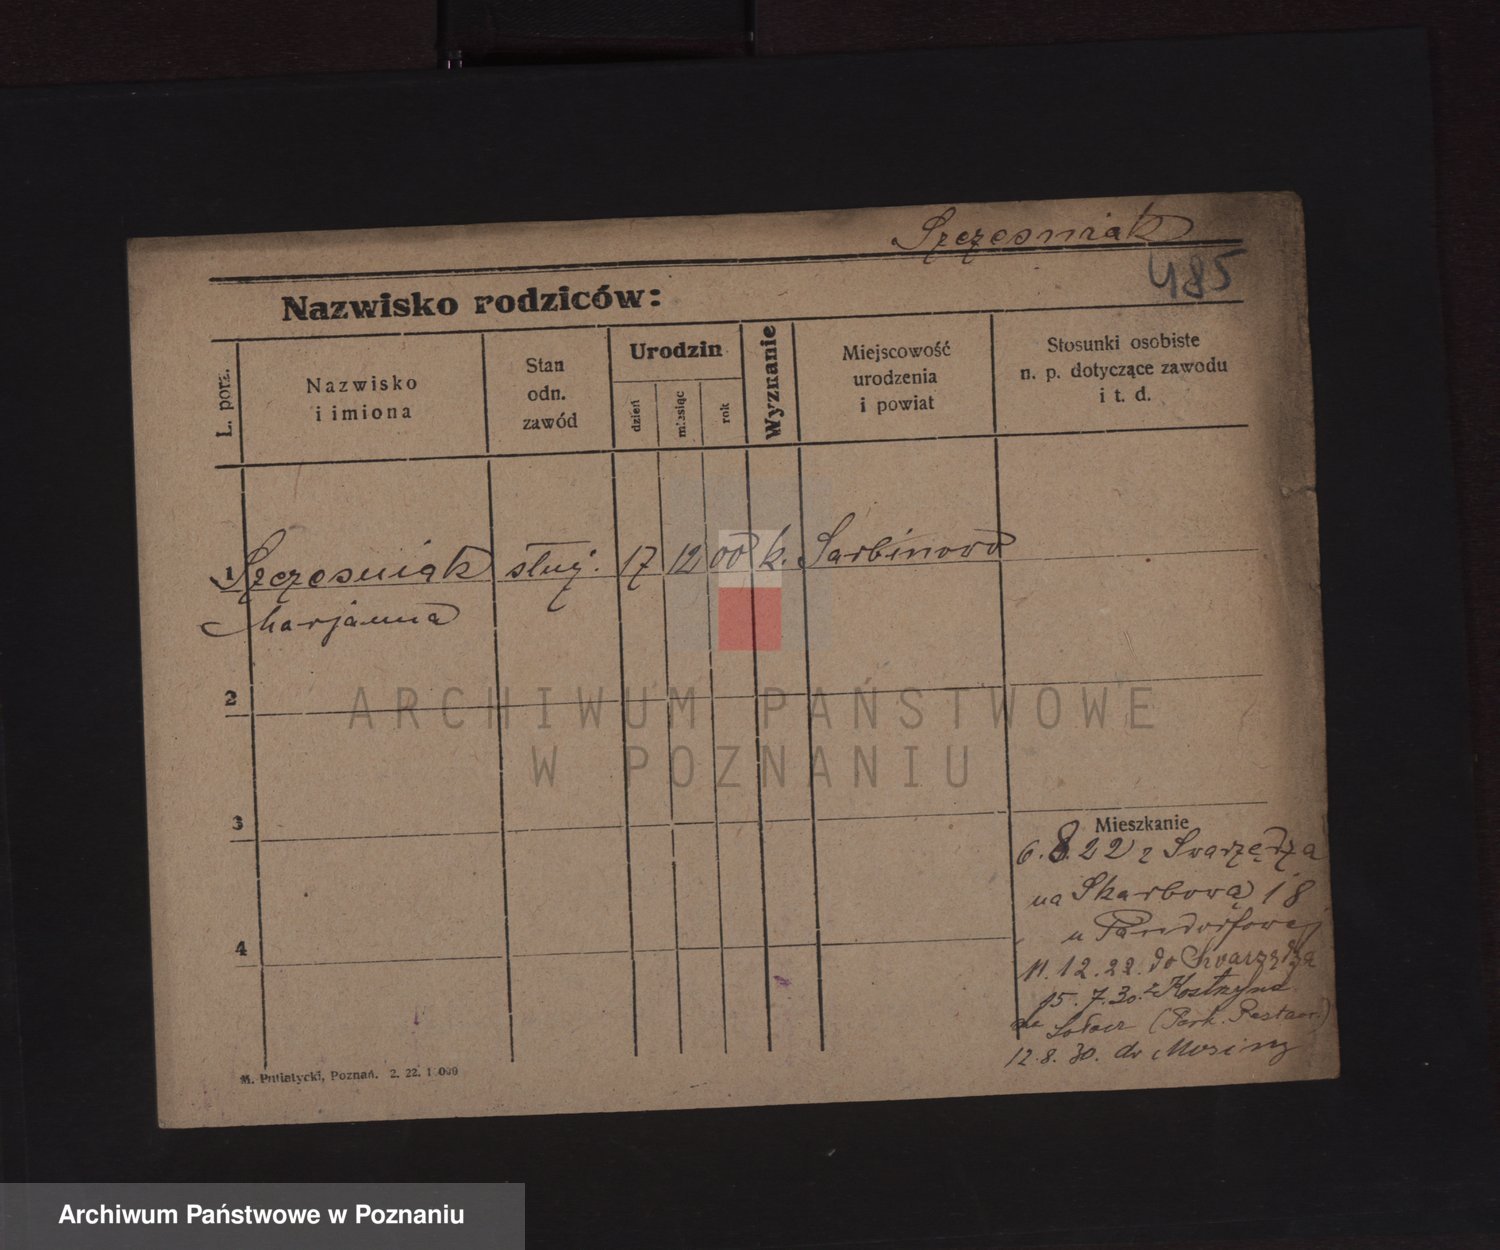 Szczesniak
485
Nazwisko rodziców:
L. porz.
Nazwisko
i imiona
Stan
odn.
zawód
Urodzin
dzień
miesiąc
rok
Wyznanie
Miejscowość
urodzenia
i powiat
Stosunki osobiste
n. p. dotyczące zawodu
i t. d.
1 Szczesniak służ. 17 12 00 k. Sarbinowo
Marjanna
2
3
4
Mieszkanie
6.8.22 z Swarzędza
na Skarbową 18
u
11.12.22. do Swarzędza
15.7.30. z Kostrzyna
na Sołacz (Park. Restaur.)
12.8.30. do Mosiny
M. Putiatycki, Poznań. 2. 22. 1 000
ARCHIWUM PAŃSTWOWE
W POZNANIU
Archiwum Państwowe w Poznaniu